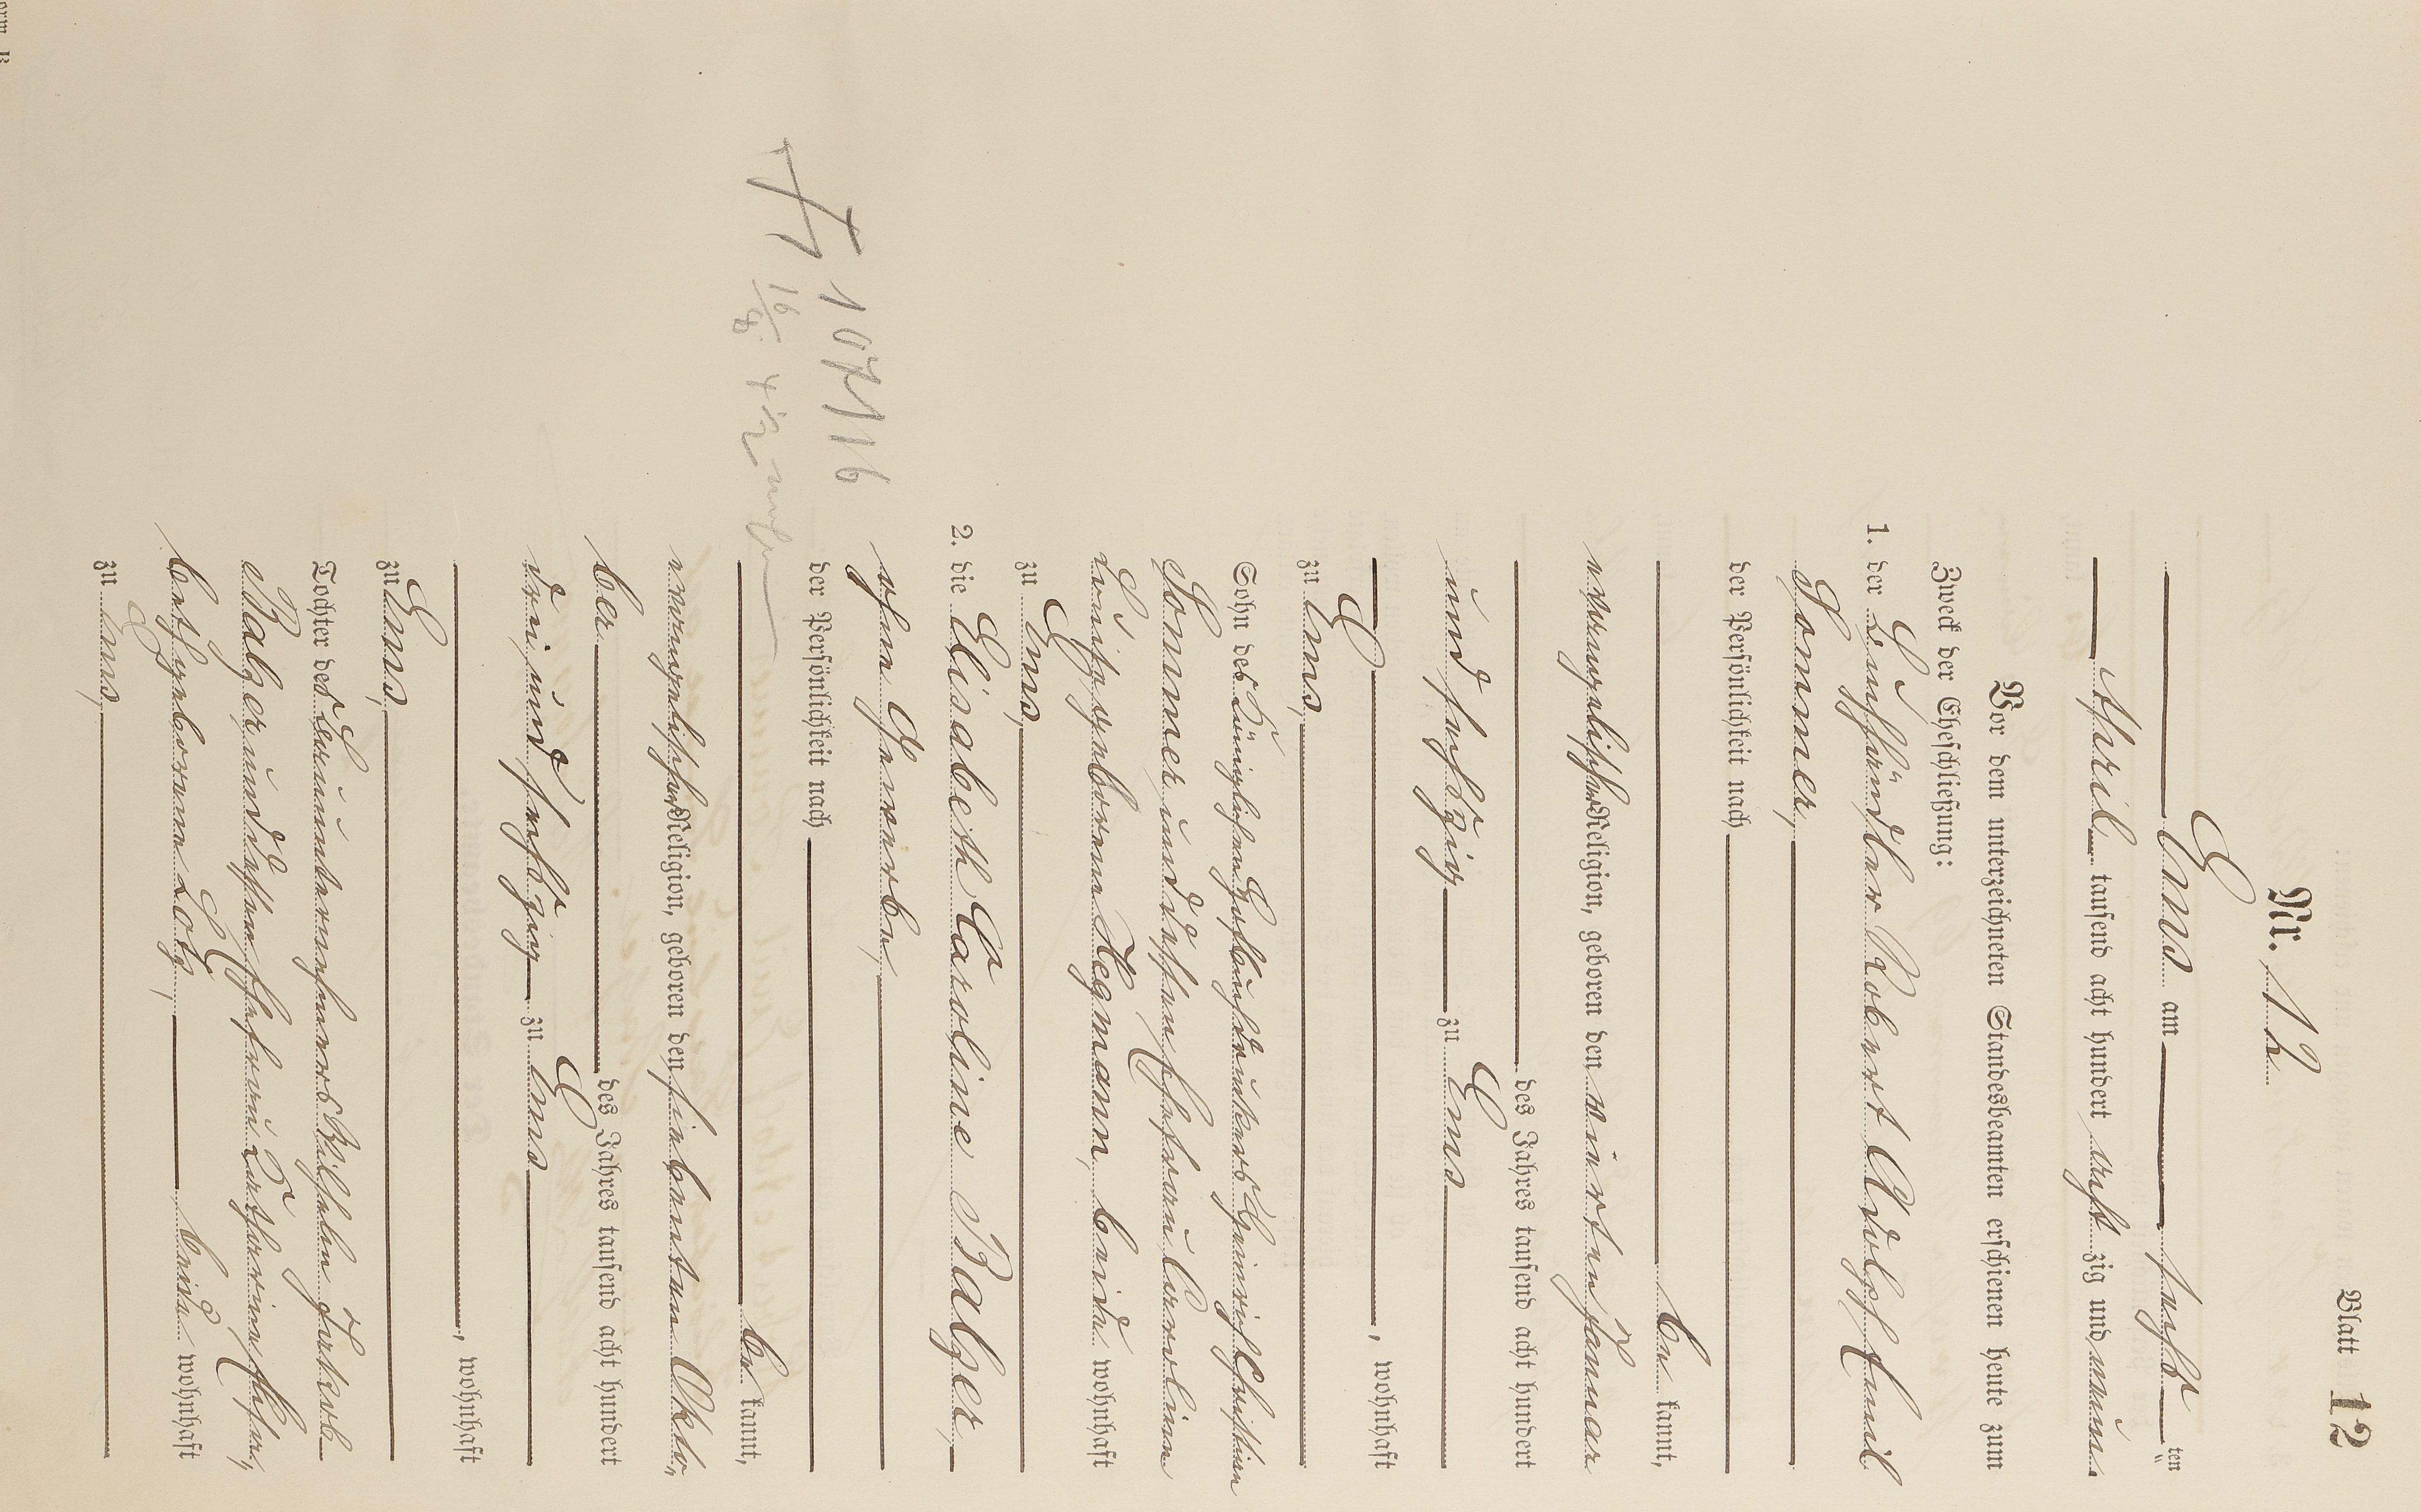 Blatt 12
Nr. 12
Ems am sechs ten
April tausend acht hundert acht zig und neun.
Vor dem unterzeichneten Standesbeamten erschienen heute zum
Zweck der Eheschließung:
1. der Buchhändler Robert Adolf Emil
Sommer,
der Persönlichkeit nach
be kannt,
evangelischer Religion, geboren den vierten Januar
des Jahres tausend acht hundert
und sechszig zu Ems
, wohnhaft
zu Ems,
Sohn des Königlichen Hofbuchdruckers Heinrich Christian
Sommer und dessen Ehefrau Caroline
Luise geborene Hegmann, beide wohnhaft
zu Ems,
2. die Elisabeth Caroline Balzer,
ohne Gewerbe,
der Persönlichkeit nach
be kannt,
evangelischer Religion, geboren den siebenten Okto-
ber des Jahres tausend acht hundert
drei und sechszig zu Ems
, wohnhaft
zu Ems,
Tochter des Bauunternehmers Wilhelm Jakob
Balzer und dessen Ehefrau Katharine Elisa-
beth geborene Lotz, beide wohnhaft
zu Ems,
107/16
16/8